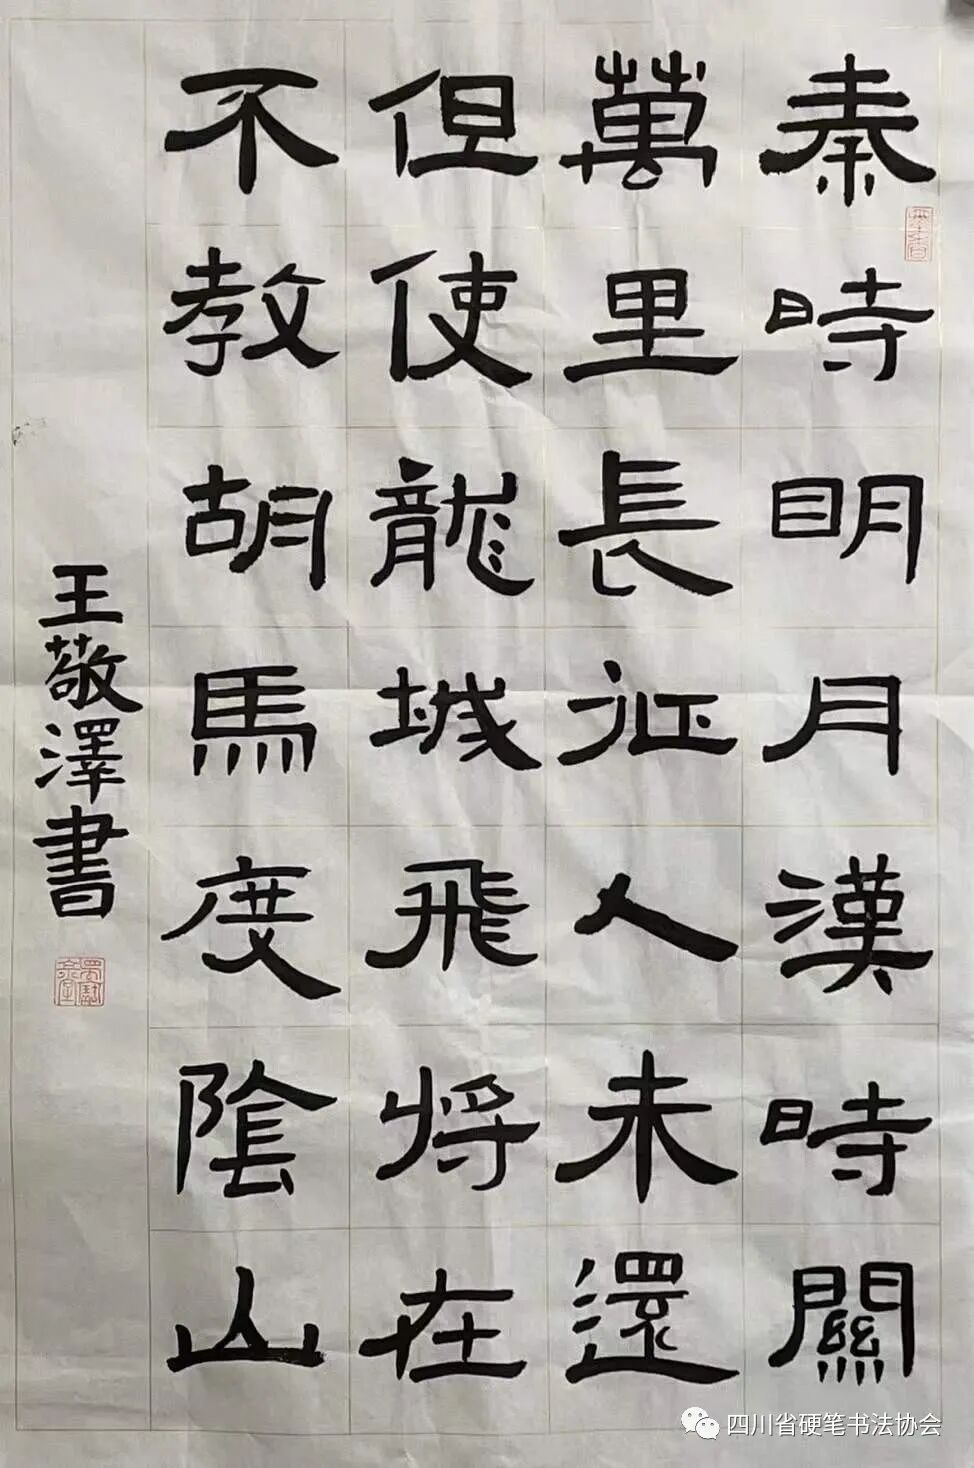 秦時明月漢時關
萬里長征人未還
但使龍城飛將在
不教胡馬度陰山
王敬澤書
四川省硬笔书法协会